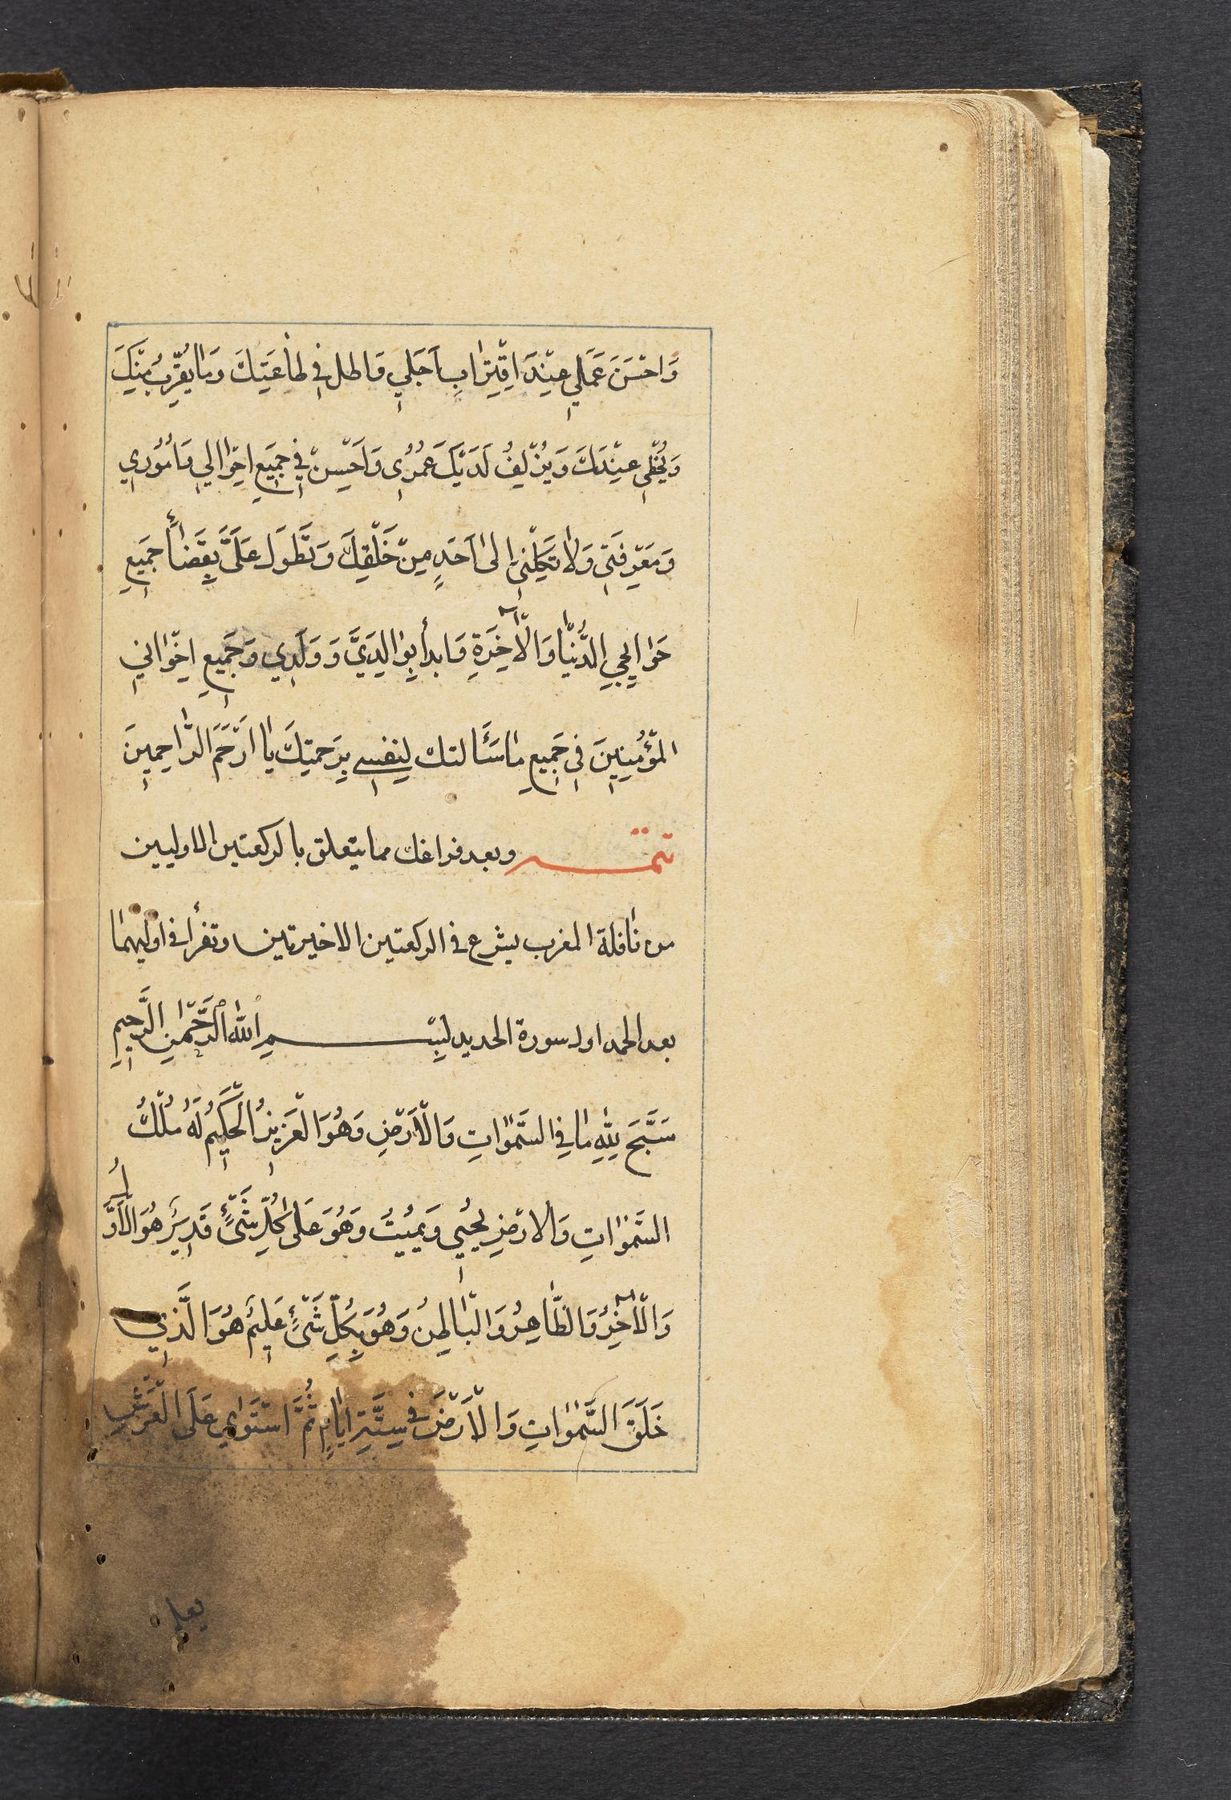 وَاحْسَنَ عَمَلي عِنْدَ اقْتِرٰابِ اَجَلي وَاطل في طٰاعَتِكَ وَمٰا يُقَرِّبُ مِنْكَ
وَيُحْظي عِنْدَكَ وَيُزْلِفُ لَدَيْكَ عُمُري وَاَحْسِنْ في جَميعِ اَحْوٰالي وَاُمُوري
وَمَعْرِفَتي وَلاٰ تَكِلْني اِلىٰ اَحَدٍ مِنْ خَلْقِكَ وَتَطَوَّلْ عَلَيَّ بِقَضٰاءِ جَميعِ
حَوٰائِجي لِلدُّنْيٰا وَالْآخِرَةِ وَابدأ بِوٰالِدَيَّ وَوَلَدي وَجَميعِ اِخْوٰاني
المؤْمِنينَ في جَميعِ مٰا سَئَالتك لِنَفْسي بِرَحمتِكَ يٰا اَرْحَمَ الرّٰاحِمينَ
تتمة وبعد فراغك مما يتعلق بالركعتين الاوليين
من نافلة المغرب يشرع في الركعتين الاخيرتين وتقرأ في اوليهما
بعد الحمد اول سورة الحديد بِسْمِ اللهِ الرَّحْمٰنِ الرَّحيمِ
سَبَّحَ لِلّٰهِ مٰا فِي السَّمٰوٰاتِ وَالْاَرْضِ وَهُوَ الْعَزيزُ الْحَكيمُ لَهُ مُلْكُ
السَّمٰوٰاتِ وَالارْضِ يُحْيي وَيميتُ وَهُوَ عَلىٰ كُلِّ شَيْءٍ قَديرٌ هُوَ الْاَوَّلُ
وَالْآخِرُ وَالظّٰاهِرُ وَالْبٰاطِنُ وَهُوَ بِكُلِّ شَيْءٍ عَليمٌ هُوَ الَّذي
خَلَقَ السَّمٰوٰاتِ وَالْاَرْضَ في سِتَّةِ اَيّٰامٍ ثُمَّ اسْتَوٰي عَلَى الْعَرْشِ
يعلم